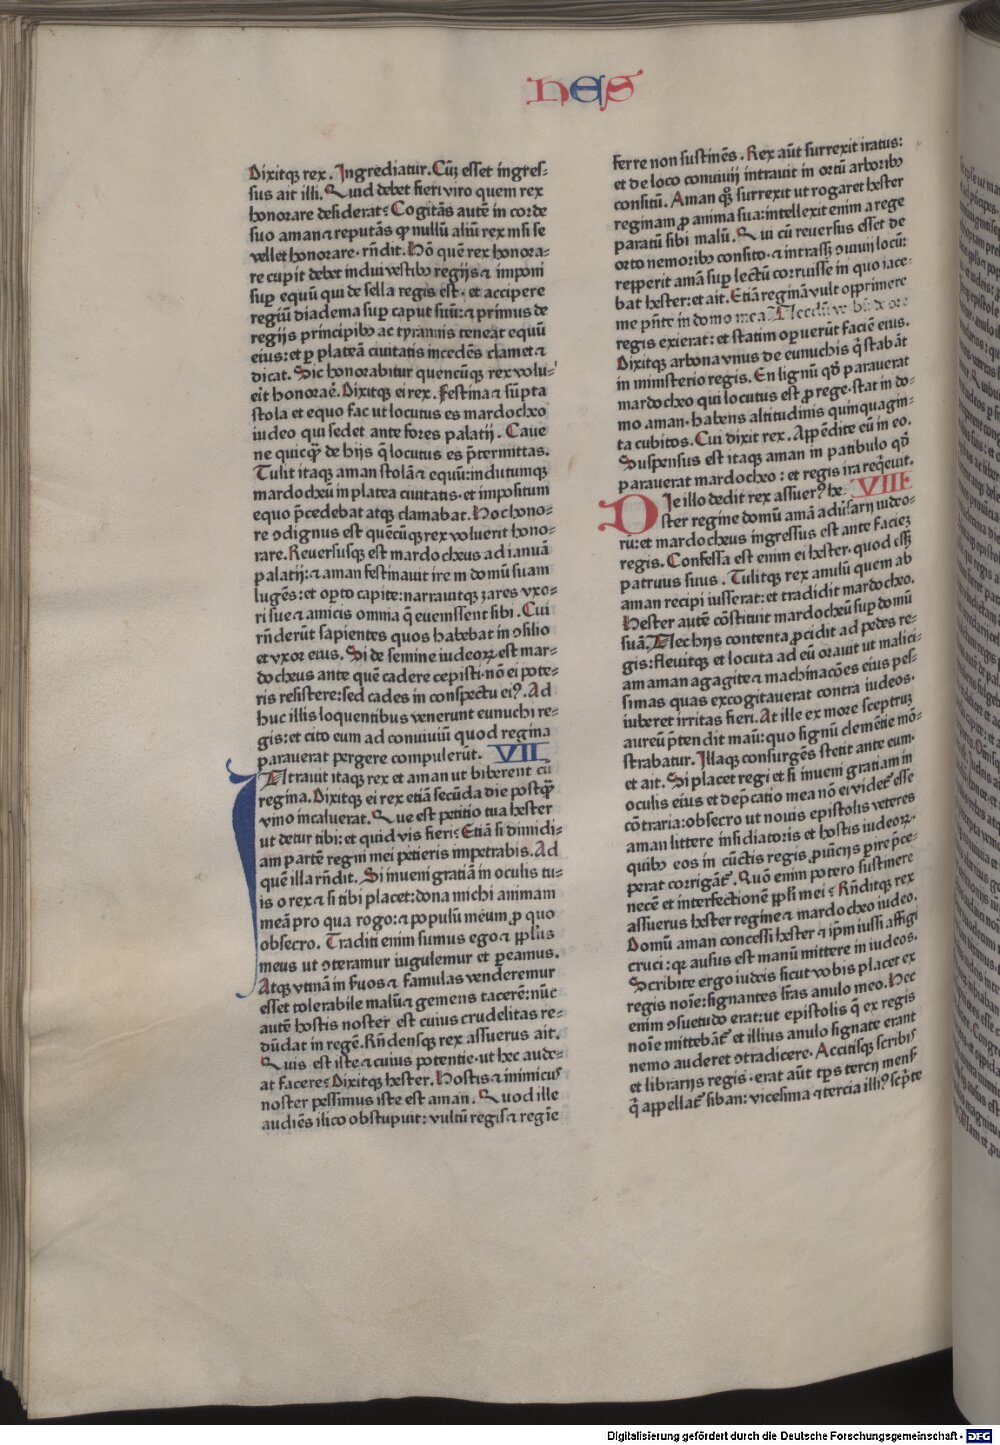 HES
Dixitqꝫ rex. Ingrediatur. Cūꝫ esset ingres⸗
sus ait illi. Quid debet fieri viro quem rex
honorare desiderat? Cogitās autē in corde
suo aman ⁊ reputās ꝙ nullū aliū rex nisi se
vellet honorare· rn̄dit. Hō quē rex honora⸗
re cupit debet indui vestibꝰ regijs ⁊ imponi
suꝑ equū qui de sella regis est· et accipere
regiū diadema suꝑ caput suū: ⁊ primus de
regijs principibꝰ ac tyrannis teneat equū
eius: et ꝑ plateā ciuitatis incedēs clamet ⁊
dicat. Sic honorabitur quencūqꝫ rex volu⸗
eit honorae. Dixitqꝫ ei rex. Festina ⁊ sūpta
stola et equo fac ut locutus es mardocheo
iudeo qui sedet ante fores palatij. Caue
ne quicqꝫ de hijs q̄ locutus es p̄termittas.
Tulit itaqꝫ aman stolā ⁊ equū: indutumqꝫ
mardocheū in platea ciuitatis· et impositum
equo p̄cedebat atqꝫ clamabat. Hoc hono⸗
re ↄdignus est quēcūqꝫ rex voluerit hono⸗
rare. Reuersusqꝫ est mardocheus ad ianuā
palatij: ⁊ aman festinauit ire in domū suam
lugēs: et opto capite: narrauitqꝫ zares vxo⸗
ri sue ⁊ amicis omnia q̄ euenissent sibi. Cui
rn̄derūt sapientes quos habebat in ↄsilio
et vxor eius. Si de semine iudeoꝝ est mar⸗
docheus ante quē cadere cepisti· nō ei pote⸗
ris resistere: sed cades in conspectu eiꝰ. Ad
huc illis loquentibus venerunt eunuchi re⸗
gis: et cito eum ad conuiuiū quod regina
parauerat pergere compulerūt. VII
INtrauit itaqꝫ rex et aman ut biberent cū
regina. Dixitqꝫ ei rex etiā secūda die postqꝫ
vino incaluerat. Que est petitio tua hester
ut detur tibi: et quid vis fieri? Etiā si dimidi⸗
am partē regni mei petieris impetrabis. Ad
quē illa rn̄dit. Si inueni gratiā in oculis tu⸗
is o rex ⁊ si tibi placet: dona michi animam
meā pro qua rogo: ⁊ populū meum ꝓ quo
obsecro. Traditi enim sumus ego ⁊ ppl̄us
meus ut ↄteramur iugulemur et ꝑeamus.
Atqꝫ vtinā in seruos ⁊ famulas venderemur
esset tolerabile malū ⁊ gemens tacerē: nūc
autē hostis noster est cuius crudelitas re⸗
dūdat in regē. Rn̄densqꝫ rex assuerus ait.
Quis est iste ⁊ cuius potentie· ut hec aude⸗
at facere? Dixitqꝫ hester. Hostis ⁊ inimicus
noster pessimus iste est aman. Quod ille
audiēs ilico obstupuit: vultū regis ⁊ regie
ferre non sustinēs. Rex aūt surrexit iratus:
et de loco conuiuij intrauit in ortū arboribꝰ
consitū. Aman qꝫ surrexit ut rogaret hester
reginam ꝓ anima sua: intellexit enim a rege
paratū sibi malū. Qui cū reuersus esset de
orto nemoribꝰ consito· ⁊ intrasset ↄuiuij locū:
repperit amā suꝑ lectū corruisse in quo iace⸗
bat hester: et ait. Etiā reginā vult opprimere
me pn̄te in domo mea. Necdū verbū de ore
regis exierat: et statim oꝑuerūt faciē eius.
Dixitqꝫ arbona vnus de eunuchis q̄ stabāt
in ministerio regis. En lignū qd̄ parauerat
mardocheo qui locutus est ꝓ rege· stat in do⸗
mo aman· habens altitudinis quinquagin⸗
ta cubitos. Cui dixit rex. Appēdite eū in eo.
Suspensus est itaqꝫ aman in patibulo qd̄
parauerat mardocheo: et regis ira req̄euit.
DIe illo dedit rex assuerꝰ he⸗ VIII.
ster regine domū amā aduersarij iudeo⸗
rū: et mardocheus ingressus est ante faciez
regis. Confessa est enim ei hester· quod esset
patruus suus. Tulitqꝫ rex anulū quem ab
aman recipi iusserat: et tradidit mardocheo.
Hester autē cōstituit mardocheū suꝑ domū
suā. Nec hijs contenta ꝓcidit ad pedes re⸗
gis: fleuitqꝫ et locuta ad eū orauit ut malici⸗
am aman agagite ⁊ machinacōes eius pes⸗
simas quas excogitauerat contra iudeos·
iuberet irritas fieri. At ille ex more sceptruꝫ
aureū p̄tendit manū: quo signū clemētie mō⸗
strabatur. Illaqꝫ consurgēs stetit ante eum·
et ait. Si placet regi et si inueni gratiam in
oculis eius et dep̄catio mea nō ei videt̄ esse
cōtraria: obsecro ut nouis epistolis veteres
aman littere insidiatoris et hostis iudeoꝝ·
quibꝰ eos in cūctis regis ꝓuincijs ꝑire p̄ce⸗
perat corrigāt̄. Quō enim potero sustinere
necē et interfectionē ppl̄i mei? Rn̄ditqꝫ rex
assuerus hester regine ⁊ mardocheo iudeo.
Domū aman concessi hester ⁊ ip̄m iussi affigi
cruci: qꝛ ausus est manū mittere in iudeos.
Scribite ergo iudeis sicut vobis placet ex
regis noīe: signantes lr̄as anulo meo. Hec
enim ↄsuetudo erat: ut epistolis q̄ ex regis
noīe mittebāt̄ et illius anulo signate erant
nemo auderet ↄtradicere. Accitisqꝫ scribis
et librarijs regis· erat aūt tp̄s tercij mensis
q̄ appellat̄ siban: vicesima ⁊ tercia illiꝰ scp̄te
Digitalisierung gefördert durch die Deutsche Forschungsgemeinschaft - DFG